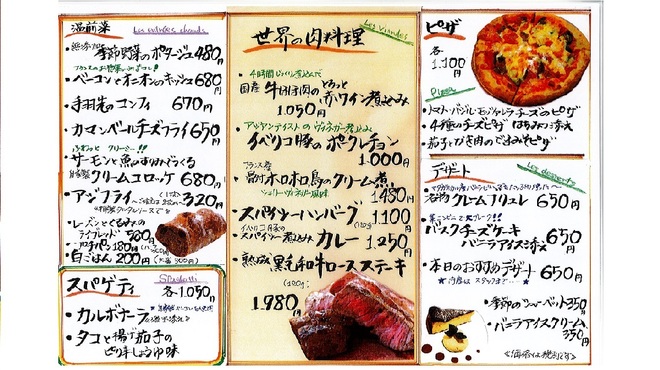 温前菜 Les entrées chauds
季節野菜のポタージュ 480円
・ベーコンとオニオンのキッシュ 680円
・手羽先のコンフィ 670円
・カマンベールチーズフライ 650円
サーモンと
クリームコロッケ 680円
・アジフライ 320円
・レーズンとくるみの
ライブレッド 580円
180円
・白ごはん 200円
スパゲティ Spaghetti
各1,050円
・カルボナーラ
・タコと揚げ茄子の
ピリ辛しょうゆ味
世界の肉料理 Les viandes
4時間じっくり煮込んで
国産牛ほほ肉のとろっと
赤ワイン煮込み
1,050円
アジアンテイストのヴィネガー煮込み
イベリコ豚のポークレチョン
1,000円
フランス産
骨付ホロホロ鳥のクリーム煮
シェリーヴィネガー風味
1,480円
・スパイシーハンバーグ 1,100円
イベリコ豚の
スパイシー煮込み カレー 1,250円
・熟成 黒毛和牛ロースステーキ
1,980円
ピザ
各
1,100円
Pizza
・トマト・バジル・モッツァレラチーズのピザ
・4種のチーズピザ はちみつ添え
・茄子とひき肉のピザ
デザート Les desserts
クレームブリュレ 650円
・バスクチーズケーキ
バニラアイス添え 650円
・本日のおすすめデザート 650円
・季節のシャーベット 350円
・バニラアイスクリーム
350円
《価格は税別です》